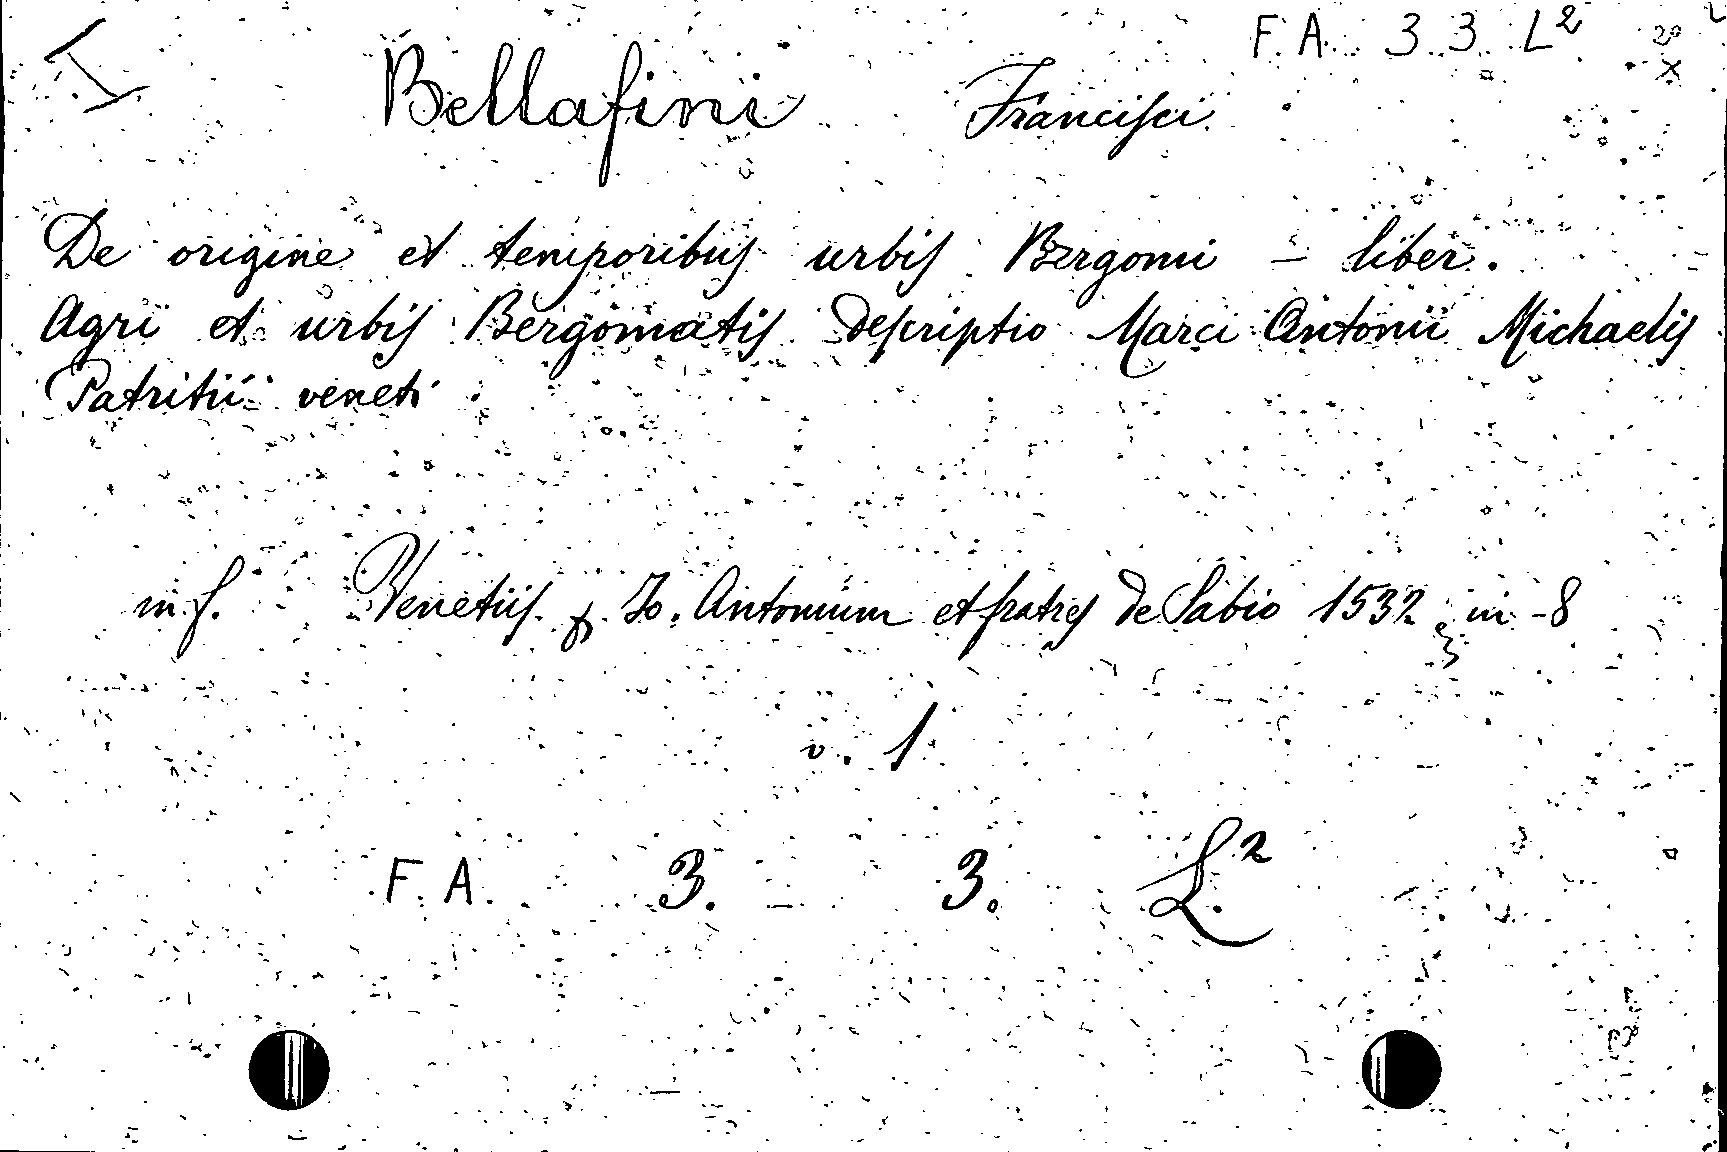 F. A. 3. 3. L²
I
Bellafini Francisci
De origine et temporibus urbis Bergomi – liber.
Agri et urbis Bergomatis descriptio Marci Antonii Michaelis
Patritii veneti
Venetiis. p. Jo. Antonium et fratres de Sabio 1532 in-8
v. 1
F. A. 3. 3. L.²